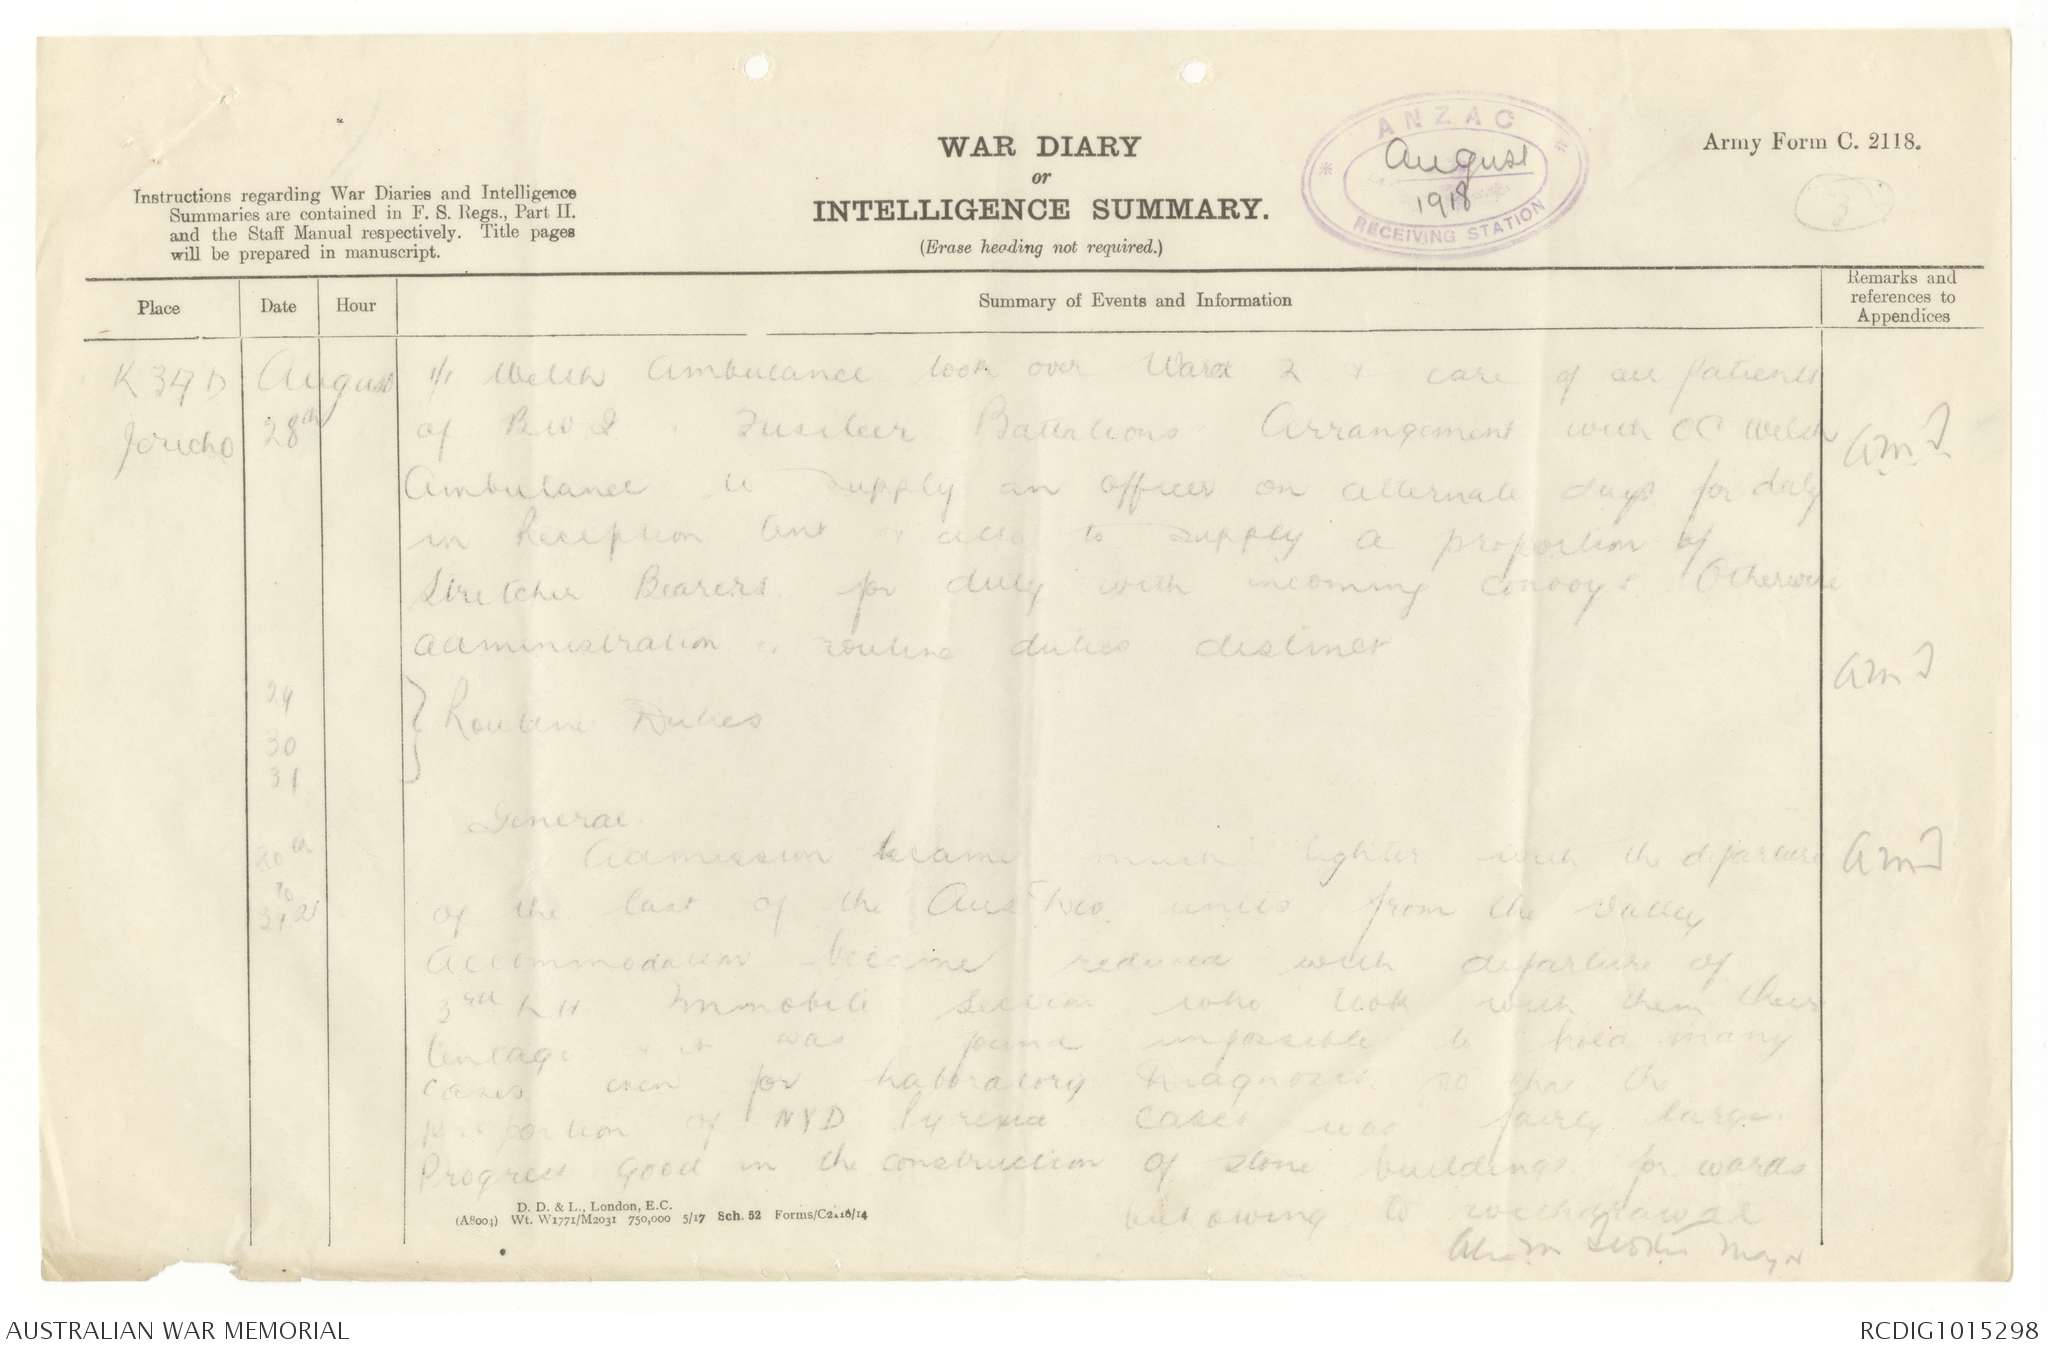 WAR DIARY
or
INTELLIGENCE SUMMARY.
(Erase heading not required.)
Army Form C. 2118.
ANZAC
August
1918
RECEIVING STATION
3
Instructions regarding War Diaries and Intelligence
Summaries are contained in F. S. Regs., Part II.
and the Staff Manual respectively. Title pages
will be prepared in manuscript.
Place
Date
Hour
Summary of Events and Information
Remarks and
references to
Appendices
K 34 D August 1/1 Welsh Ambulance took over Ward 2 & care of all patients
Jericho 28th of B.W.I. & Fusilier Battalions. Arrangement with OC Welsh
Ambulance to supply an officer on alternate days for duty
in Reception tent & also to supply a proportion of
Stretcher Bearers for duty with incoming convoys. Otherwise
administration & routine duties distinct
29
30
31
Routine Duties
General.
20th Admission became much lighter with the departure
to of the last of the units from the Valley
31st
Accommodation became reduced with departure of
3rd LH Immobile Section who took with them their
tentage & it was found impossible to hold many
cases even for Laboratory Diagnosis so the
proportion of NYD Pyrexia cases was fairly large.
Progress good in the construction of stone buildings for wards
but owing to withdrawal
Major
D. D. & L., London, E.C.
(A8004) Wt. W1771/M2031 750,000 5/17 Sch. 52 Forms/C2118/14
AUSTRALIAN WAR MEMORIAL
RCDIG1015298